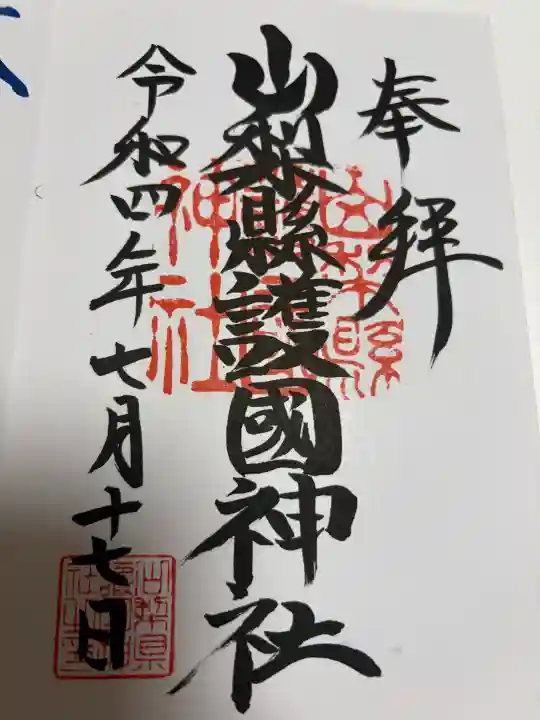 奉拝
山梨縣護國神社
令和四年七月十七日
山梨縣
神社